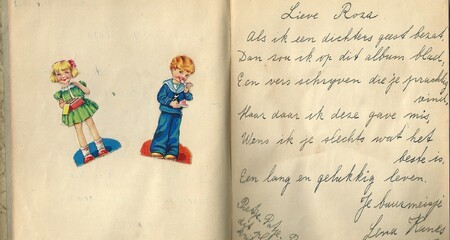 Lieve Rosa
Als ik een dichters geest bezat,
Dan zou ik op dit album blad,
Een vers schrijven die je prachtig
vind,
Maar daar ik deze gave mis,
Wens ik je slechts wat het
beste is.
Een lang en gelukkig leven.
Je buurmeisje
Lena